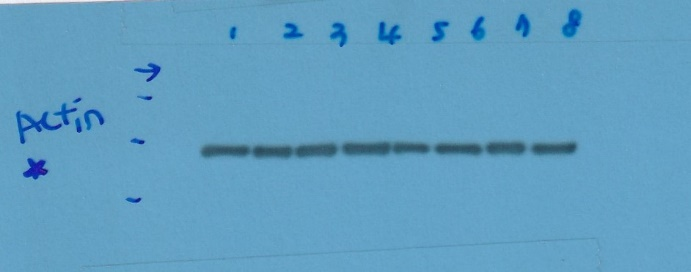 1 2 3 4 5 6 7 8
Actin